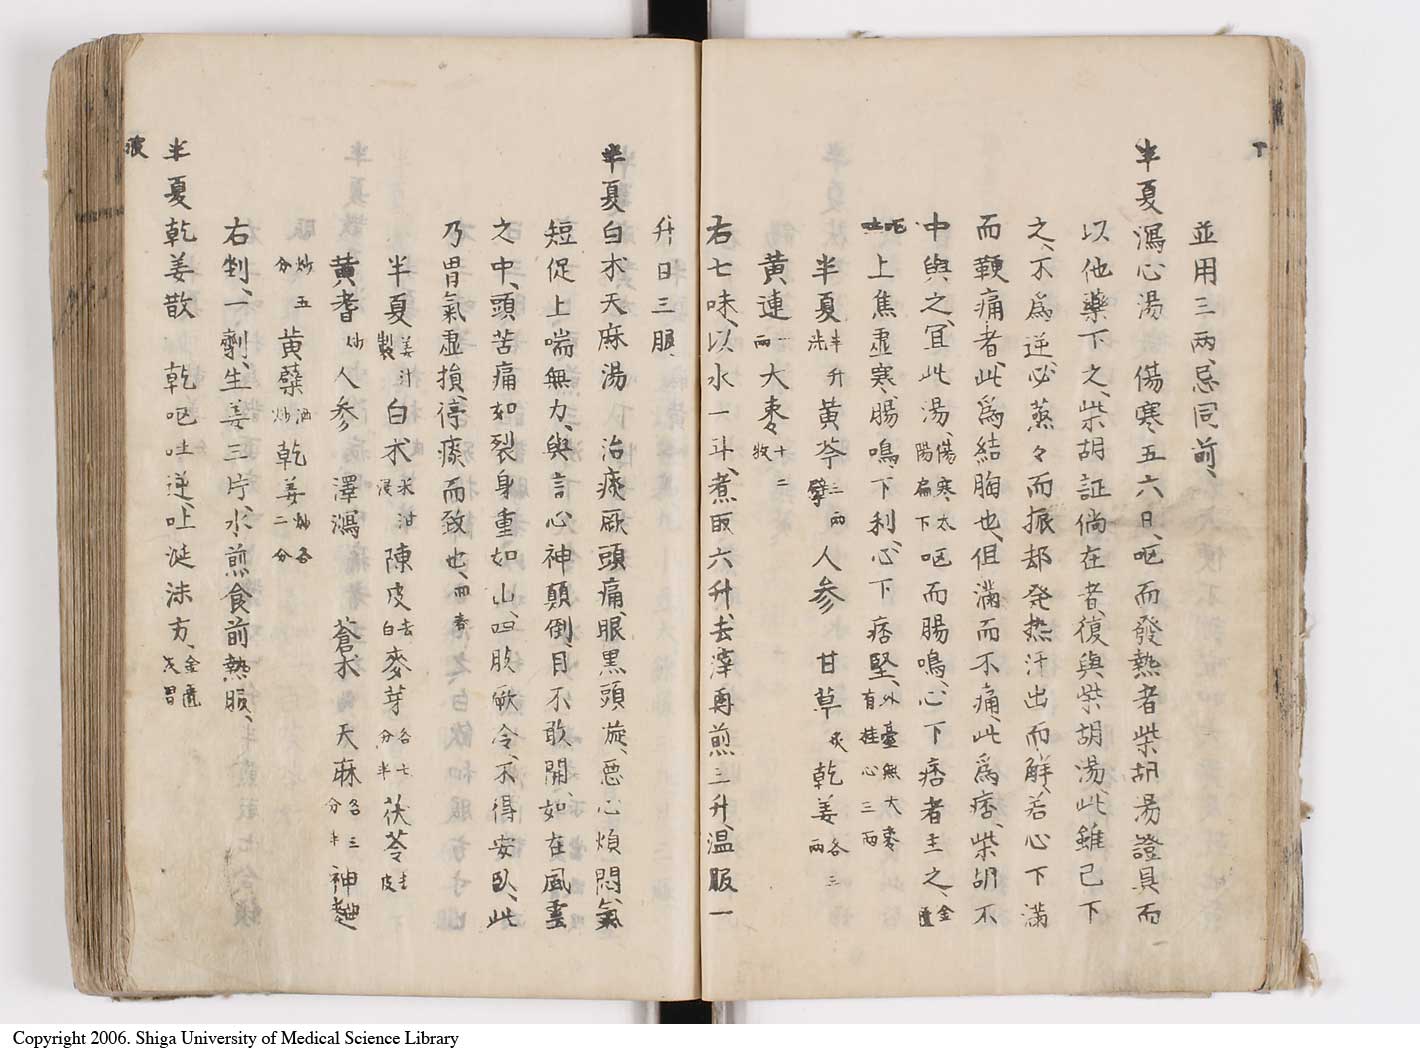 並用三两、忌同前、
半夏瀉心湯 傷寒五六日、呕而發熱者柴胡湯證具而
以他藥下之、柴胡証倘在者、復與柴胡湯、此雖已下
之、不為逆、必蒸々而振却発热汗出而解、若心下滿
而鞕痛者、此為結胸也、但滿而不痛、此為痞、柴胡不
中與之、宜此湯、傷寒太陽扁下呕而腸鳴、心下痞者主之、金匱
呕吐上焦虚寒、腸鳴、下利、心下痞堅、外臺無大棗有桂心三两
半夏半升洗 黄芩三两 人参 甘草炙 乾姜各三两
黄連一两 大棗十二枚
右七味、以水一斗、煮取六升、去滓再煎三升、温服一
升日三服、
半夏白朮天麻湯 治痰厥頭痛、眼黒頭漩、惡心煩悶氣
短促上喘無力、與言心神顛倒、目不敢開、如在風雲
之中、頭苦痛如裂身重如山、四肢厥冷、不得安臥、此
乃胃氣虚損、停痰而致也、
半夏姜汁製 白朮米泔浸 陳皮去白 麥芽各七分半 茯苓去皮
黄耆炒 人参 澤瀉 蒼朮 天麻各三分半 神麯
炒五分 黄蘗酒炒 乾姜炒各二分
右剉、一劑、生姜三片、水煎食前熱服、
半夏乾姜散 乾呕吐逆、吐涎沫方、金匱